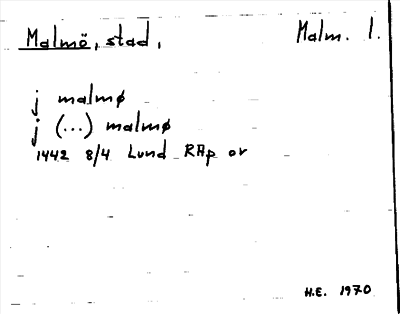 Malmö, stad,
Malm. 1.
j malmø
j (...) malmø
1442 8/4 Lund RAp or
H.E. 1970